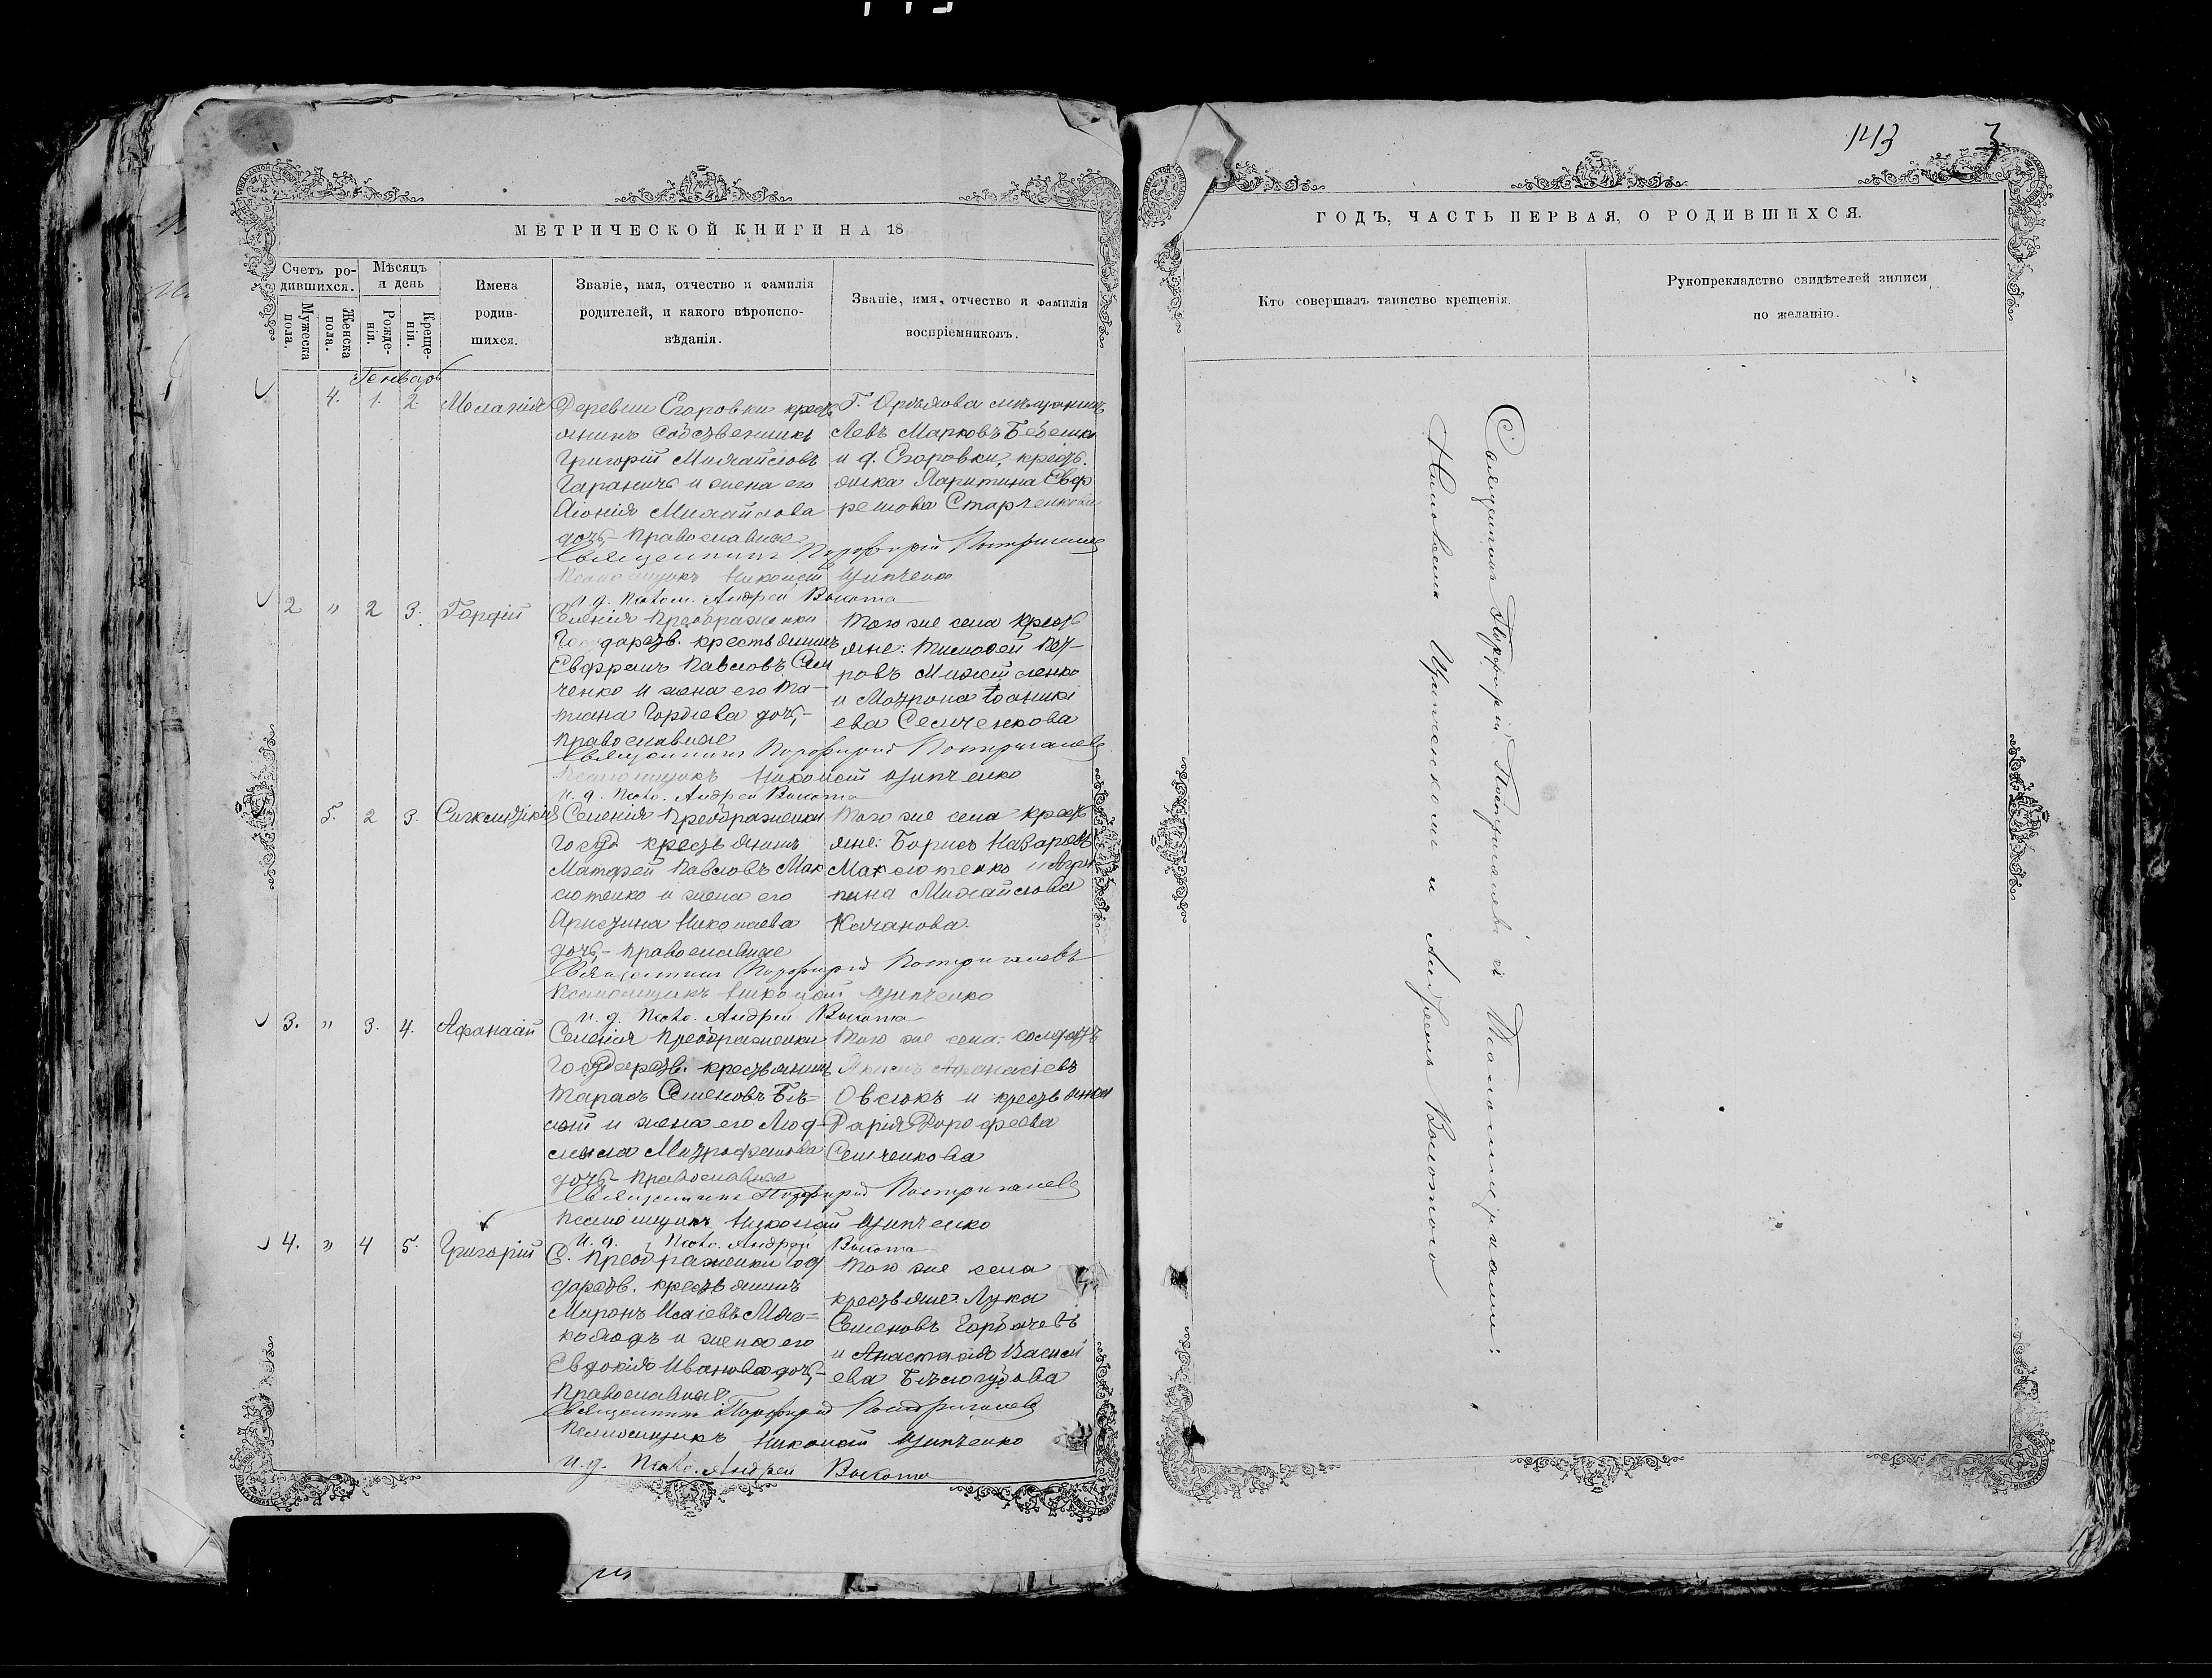 143 3
МЕТРИЧЕСКОЙ КНИГИ НА 18
Счетъ ро-
дившихся.
Мужеска
пола.
Женска
пола.
Мѣсяцъ
и день
Рожде-
нія.
Креще-
нія.
Имена
родив-
шихся.
Званіе, имя, отчество и фамилія
родителей, и какого вѣроиспо-
вѣданія.
Званіе, имя, отчество и фамилія
воспріемниковъ.
Генварь
4. 1. 2. Меланія
Деревни Егоровки кресть
янинъ собственникъ
Григорій Михайловъ
Гараничъ и жена его
Михайлова
дочь, православные
Священникъ Порфирій
Псаломщикъ Николай Ципченко
и. д. Псалом. Андрей Высота
Г. Орѣхова мѣщанинъ
Левъ Марковъ
и д. Егоровки, кресть.
янка Харитина Евф
ремова Старченкова
2 " 2 3. Гордій
Селенія Преображенки
Государств. крестьянинъ
Евфремъ Павловъ Сем
ченко и жена его Та-
тіана Гордіева дочь,-
православные
Священникъ Порфирій
Псаломщикъ Николай Ципченко
и. д. Псало. Андрей Высота
Того же села кресть
яне: Тимофей Пет-
ровъ
и Матрона Іоанникі
ева Семченкова
5. 2 3. Синклитикія
Селенія Преображенки
Госуд. крестьянинъ
Матфей Павловъ Мак
сютенко и жена его
Христина Николаева
дочь,- православные
Священникъ Порфирій
Псаломщикъ Николай Ципченко
и. д. Псало. Андрей Высота
Того же села кресть
яне: Борисъ Назаровъ
Максютенко и Агри
пина Михайлова
Качанова.
3. " 3. 4. Афанасій
Селенія Преображенки
Государств. крестьянинъ
Тарасъ Семеновъ Бѣ=
лый и жена его Люд-
мила Митрофанова
дочь,- православные
Священникъ Порфирій
Псаломщикъ Николай Ципченко
и. д. Псало. Андрей Высота
Того же села: солдатъ
Афанасіевъ
Овсюкъ и крестьянка
Дарія Дорофеева
Семченкова
4. " 4 5. Григорій
С. Преображенки Госу
дарств. крестьянинъ
Миронъ Исаіевъ
и жена его
Евдокія Иванова дочь,-
православные
Священникъ Порфирій
Псаломщикъ Николай Ципченко
и. д. Псало. Андрей Высота
Того же села
крестьяне: Лука
Семеновъ Горбачевъ
и Анастасія Василі
ева Бѣлогубова
ГОДЪ, ЧАСТЬ ПЕРВАЯ, О РОДИВШИХСЯ.
Кто совершалъ таинство крещенія.
Рукоприкладство свидѣтелей записи
по желанію.
Священникъ Порфирій съ Псаломщиками:
Николаемъ Ципченкомъ и Андреемъ Высотою